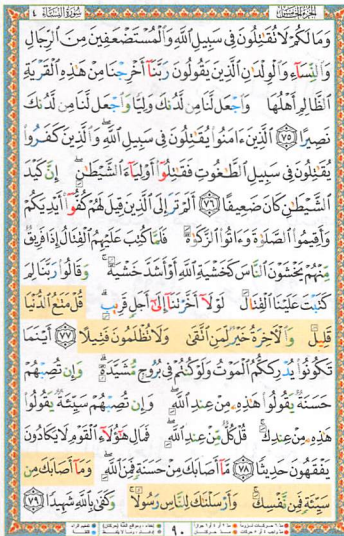 الجزء الخامس سورة النساء ٤
وَمَا لَكُمْ لَا تُقَٰتِلُونَ فِى سَبِيلِ ٱللَّهِ وَٱلْمُسْتَضْعَفِينَ مِنَ ٱلرِّجَالِ
وَٱلنِّسَآءِ وَٱلْوِلْدَٰنِ ٱلَّذِينَ يَقُولُونَ رَبَّنَآ أَخْرِجْنَا مِنْ هَٰذِهِ ٱلْقَرْيَةِ
ٱلظَّالِمِ أَهْلُهَا وَٱجْعَل لَّنَا مِن لَّدُنكَ وَلِيًّا وَٱجْعَل لَّنَا مِن لَّدُنكَ
نَصِيرًا ٧٥ ٱلَّذِينَ ءَامَنُوا۟ يُقَٰتِلُونَ فِى سَبِيلِ ٱللَّهِ ۖ وَٱلَّذِينَ كَفَرُوا۟
يُقَٰتِلُونَ فِى سَبِيلِ ٱلطَّٰغُوتِ فَقَٰتِلُوٓا۟ أَوْلِيَآءَ ٱلشَّيْطَٰنِ ۖ إِنَّ كَيْدَ
ٱلشَّيْطَٰنِ كَانَ ضَعِيفًا ٧٦ أَلَمْ تَرَ إِلَى ٱلَّذِينَ قِيلَ لَهُمْ كُفُّوٓا۟ أَيْدِيَكُمْ
وَأَقِيمُوا۟ ٱلصَّلَوٰةَ وَءَاتُوا۟ ٱلزَّكَوٰةَ فَلَمَّا كُتِبَ عَلَيْهِمُ ٱلْقِتَالُ إِذَا فَرِيقٌ
مِّنْهُمْ يَخْشَوْنَ ٱلنَّاسَ كَخَشْيَةِ ٱللَّهِ أَوْ أَشَدَّ خَشْيَةً ۚ وَقَالُوا۟ رَبَّنَا لِمَ
كَتَبْتَ عَلَيْنَا ٱلْقِتَالَ لَوْلَآ أَخَّرْتَنَآ إِلَىٰٓ أَجَلٍ قَرِيبٍ ۗ قُلْ مَتَٰعُ ٱلدُّنْيَا
قَلِيلٌ وَٱلْءَاخِرَةُ خَيْرٌ لِّمَنِ ٱتَّقَىٰ وَلَا تُظْلَمُونَ فَتِيلًا ٧٧ أَيْنَمَا
تَكُونُوا۟ يُدْرِككُّمُ ٱلْمَوْتُ وَلَوْ كُنتُمْ فِى بُرُوجٍ مُّشَيَّدَةٍ ۗ وَإِن تُصِبْهُمْ
حَسَنَةٌ يَقُولُوا۟ هَٰذِهِۦ مِنْ عِندِ ٱللَّهِ ۖ وَإِن تُصِبْهُمْ سَيِّئَةٌ يَقُولُوا۟
هَٰذِهِۦ مِنْ عِندِكَ ۚ قُلْ كُلٌّ مِّنْ عِندِ ٱللَّهِ ۖ فَمَالِ هَٰٓؤُلَآءِ ٱلْقَوْمِ لَا يَكَادُونَ
يَفْقَهُونَ حَدِيثًا ٧٨ مَّآ أَصَابَكَ مِنْ حَسَنَةٍ فَمِنَ ٱللَّهِ ۖ وَمَآ أَصَابَكَ مِن
سَيِّئَةٍ فَمِن نَّفْسِكَ ۚ وَأَرْسَلْنَٰكَ لِلنَّاسِ رَسُولًا ۚ وَكَفَىٰ بِٱللَّهِ شَهِيدًا ٧٩
٩٠